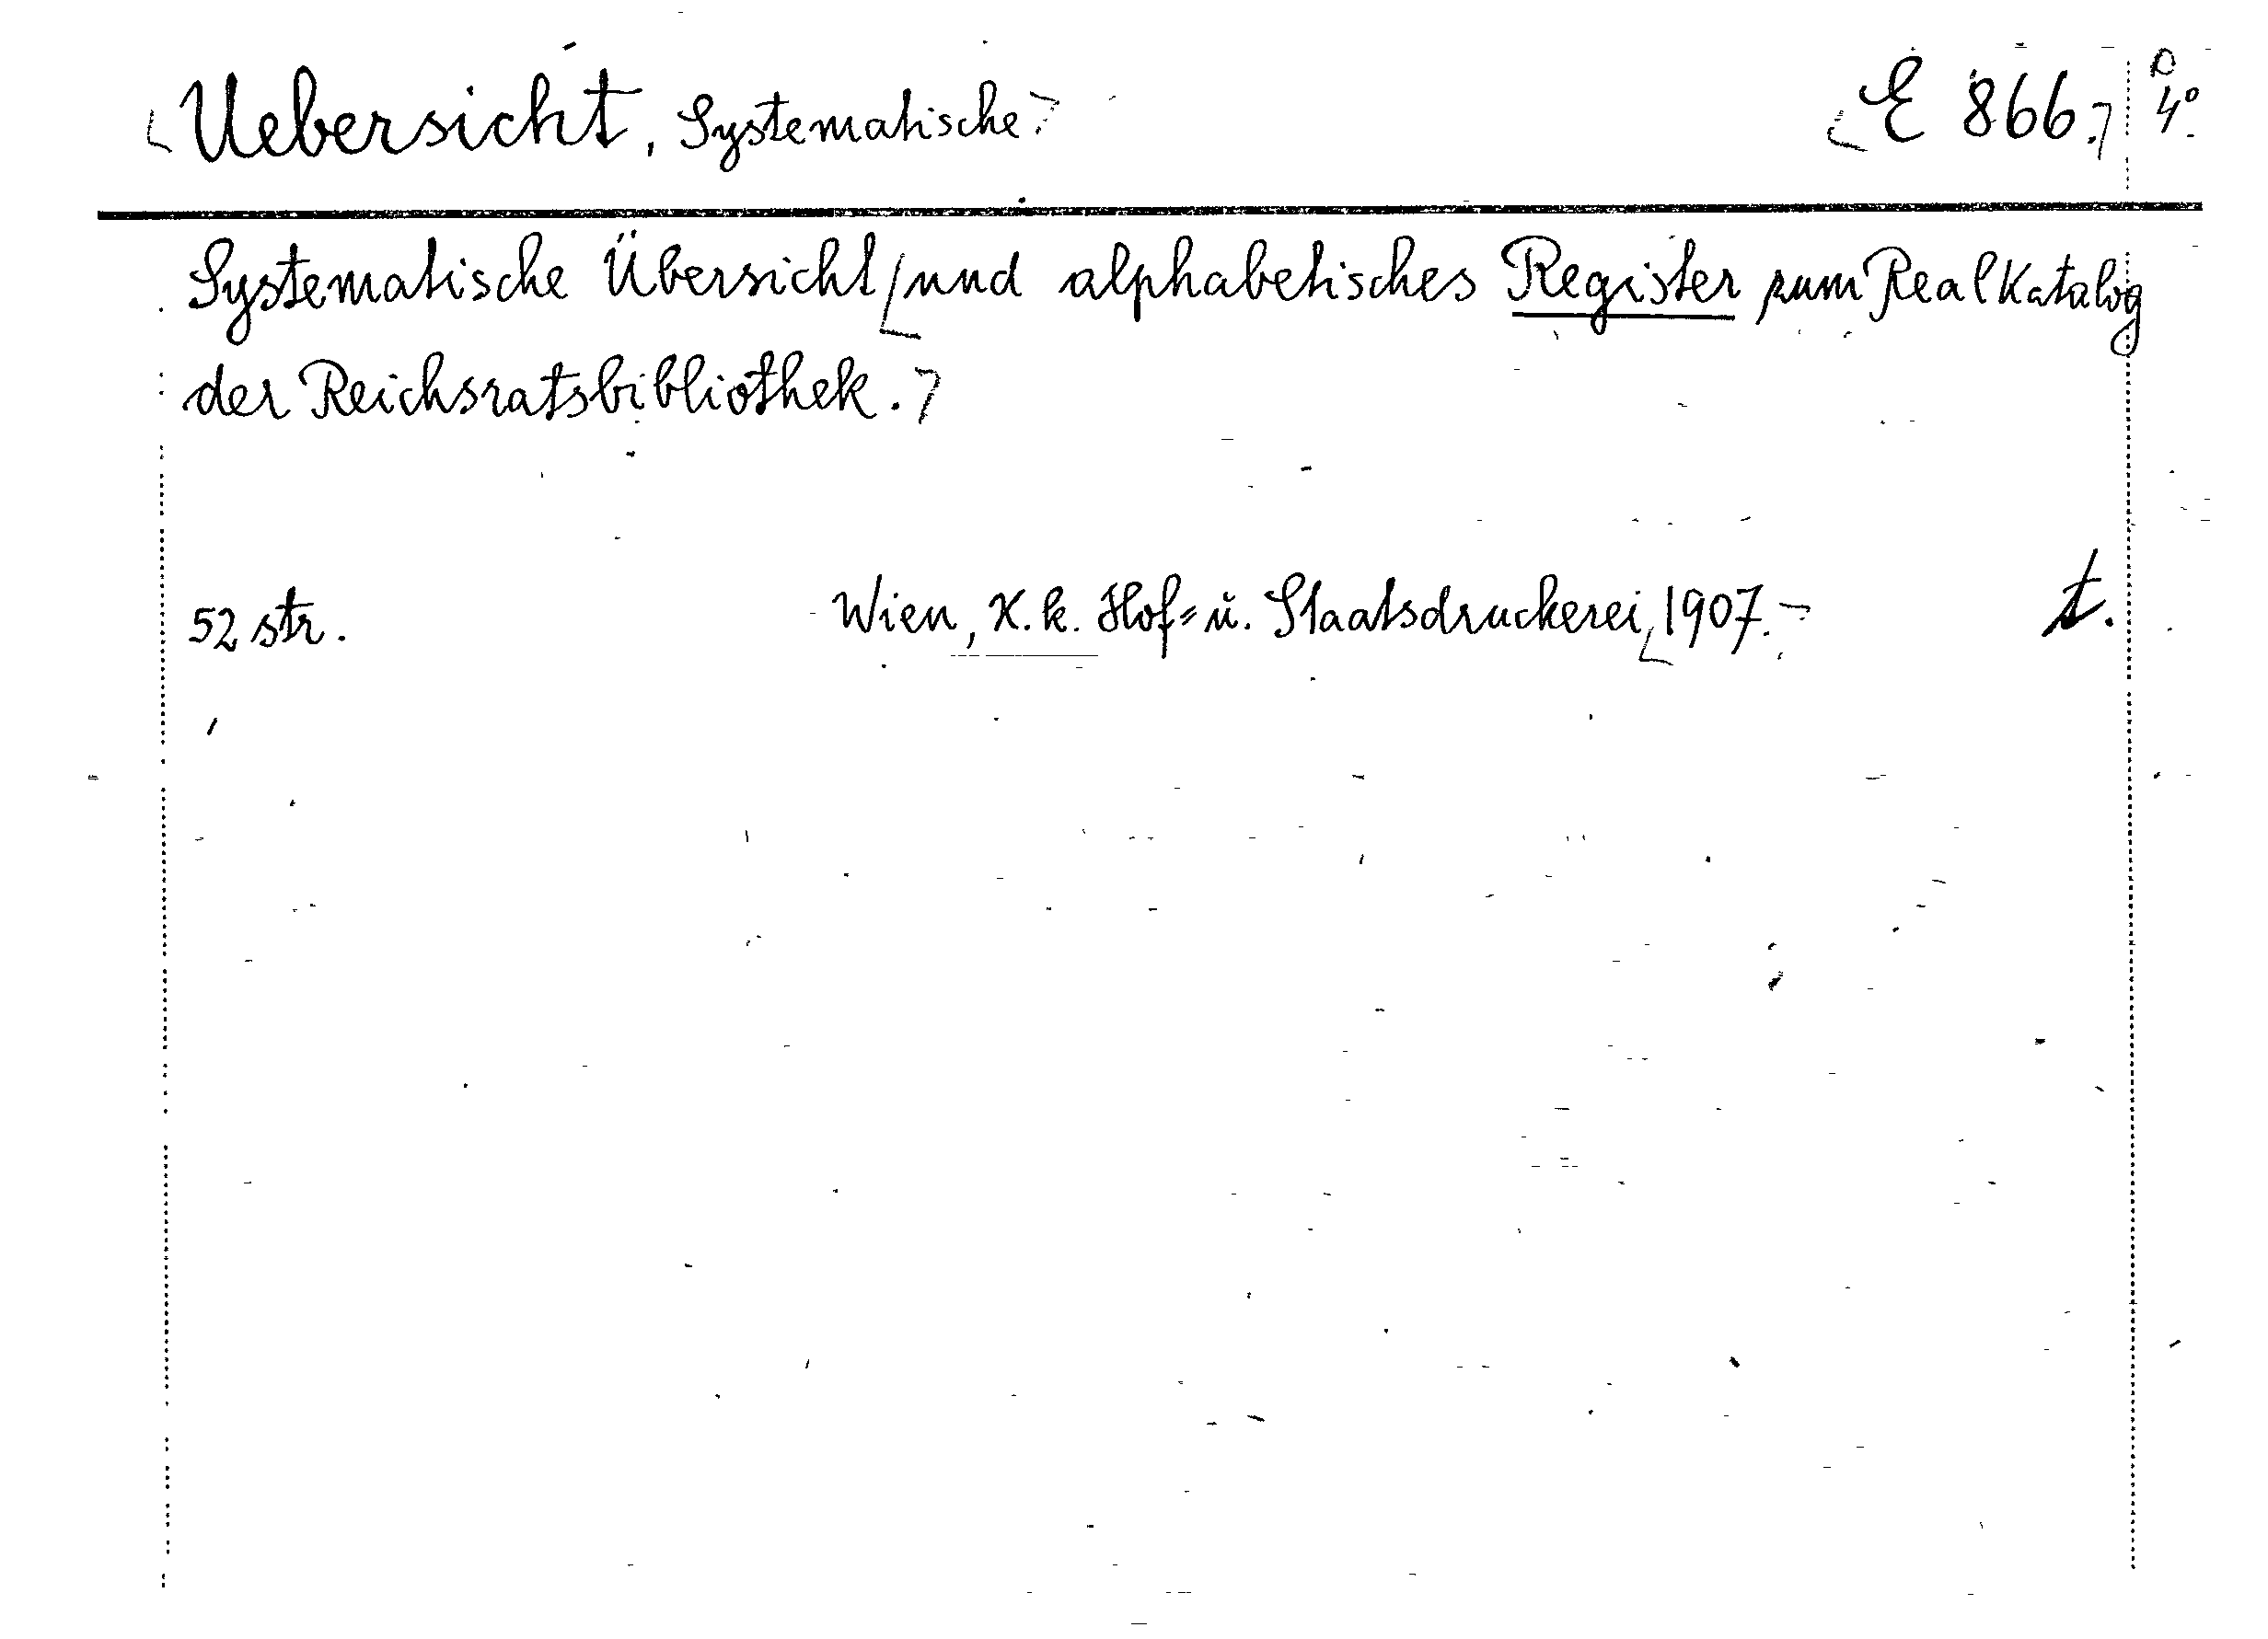 Uebersicht, Systematische E 866. 4°
Systematische Übersicht und alphabetisches Register zum Realkatalog
der Reichsratsbibliothek.
52 str. Wien, K. k. Hof= u. Staatsdruckerei, 1907. t.